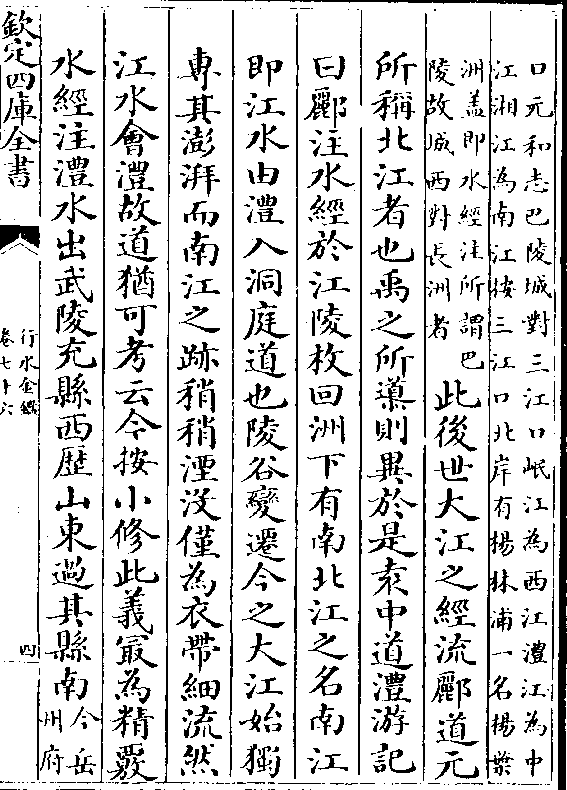 口元和志巴陵城對三江口岷江為西江澧江為中
江湘江為南江按三江口北岸有楊林浦一名楊葉
洲盖即水經注所謂巴
陵故城西對長洲者
此後世大江之經流酈道元
所稱北江者也禹之所導則異於是袁中道澧游記
曰酈注水經於江陵枚回洲下有南北江之名南江
即江水由澧入洞庭道也陵谷變遷今之大江始獨
專其澎湃而南江之跡稍稍湮没僅為衣帶細流然
江水會澧故道猶可考云今按小修此義最為精覈
水經注澧水出武陵充縣西歷山東過其縣南
今岳
州府
欽定四庫全書
行水金鑑
卷七十六
四